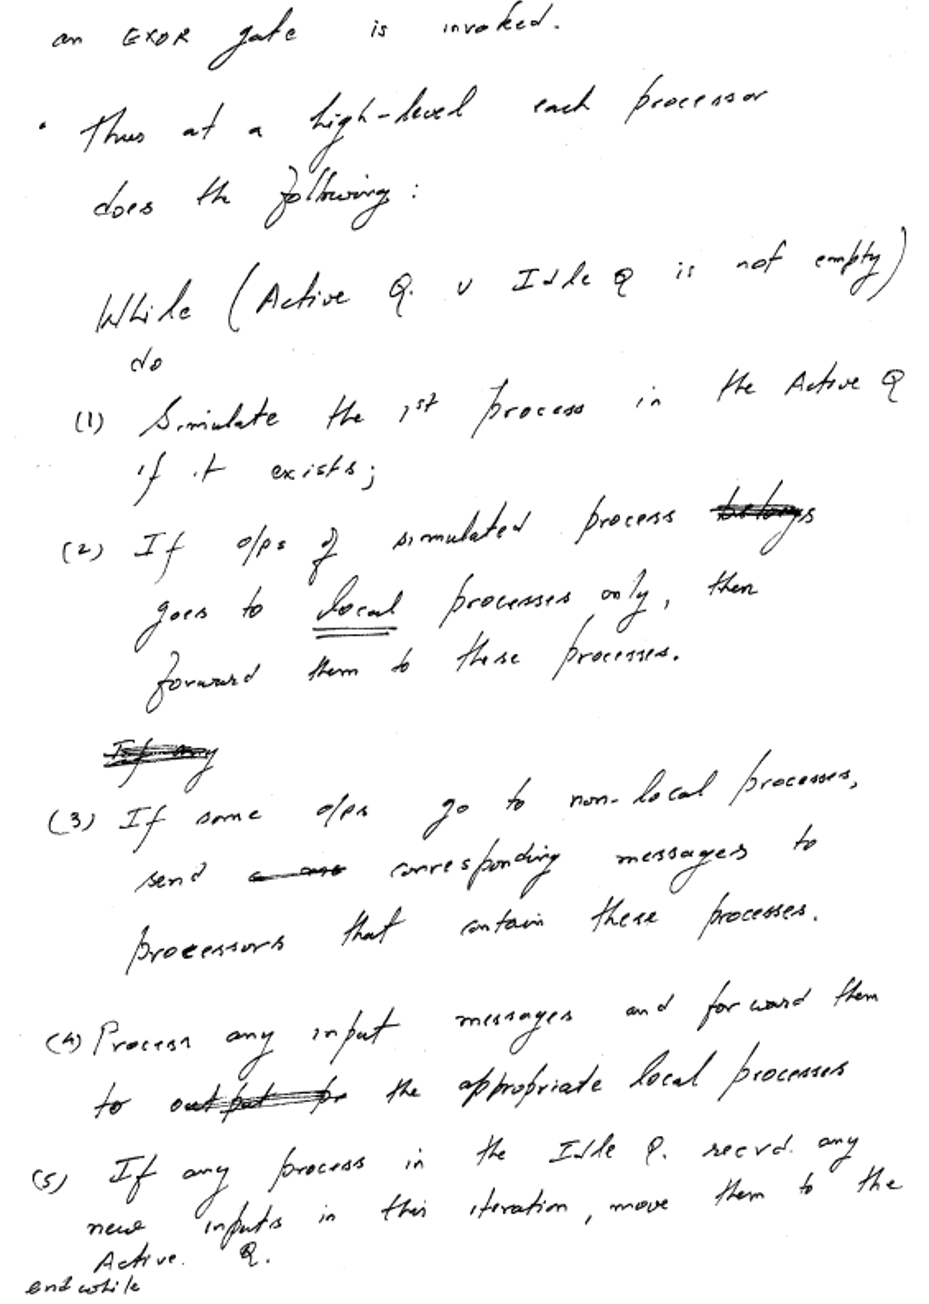 an EXOR gate is invoked.
• Thus at a high-level each processor
does the following:
While (Active Q. ∪ Idle Q is not empty)
do
(1) Simulate the 1st process in the Active Q
if it exists;
(2) If o/ps of simulated process belongs
goes to local processes only, then
forward them to these processes.
If any
(3) If some o/ps go to non-local processes,
send corresponding messages to
processors that contain these processes.
(4) Process any input messages and forward them
to output pr the appropriate local processes
(5) If any process in the Idle Q. recvd. any
new inputs in this iteration, move them to the
Active. Q.
endwhile